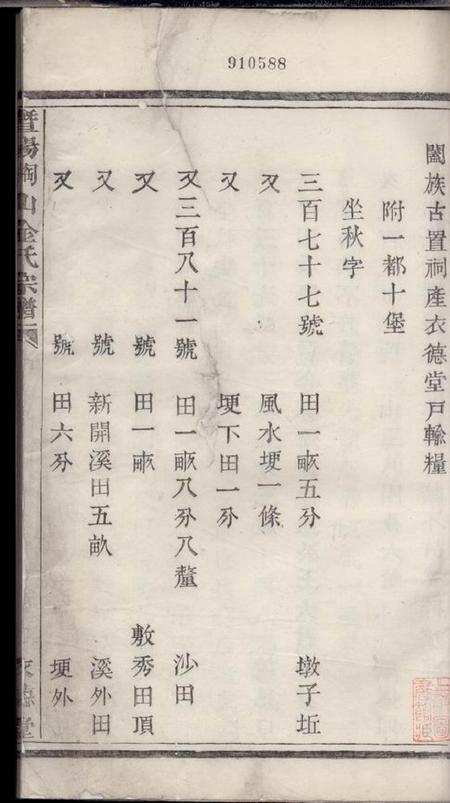 910588
闔族古置祠產衣德堂戸輸糧
附一都十堡
坐秋字
三百七十七號 田一畝五分 墩子坵
又 風水埂一條
又 埂下田一分
又三百八十一號 田一畝八分八釐 沙田
又 號 田一畝 敷秀田頂
又 號 新開溪田五畝 溪外田
又 號 田六分 埂外
暨陽 山金氏宗譜
衣德堂